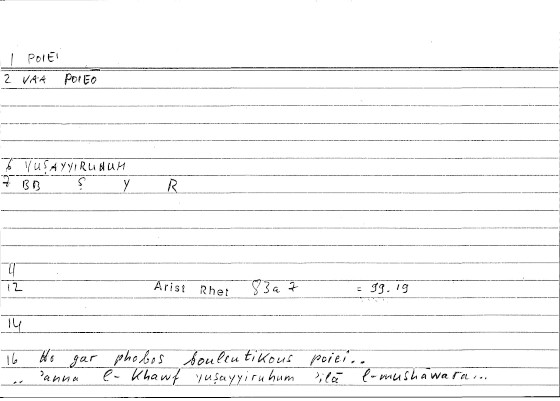 1 POIEI
2 VAA POIEŌ
6 YUṢAYYIRUHUM
7 BB Ṣ Y R
4
12 Arist Rhet 83a 7 = 99.19
14
16 Ho gar phobos bouleutikous poiei..
.. 'anna l- Khawf yuṣayyiruhum 'ilā l-mushāwara...